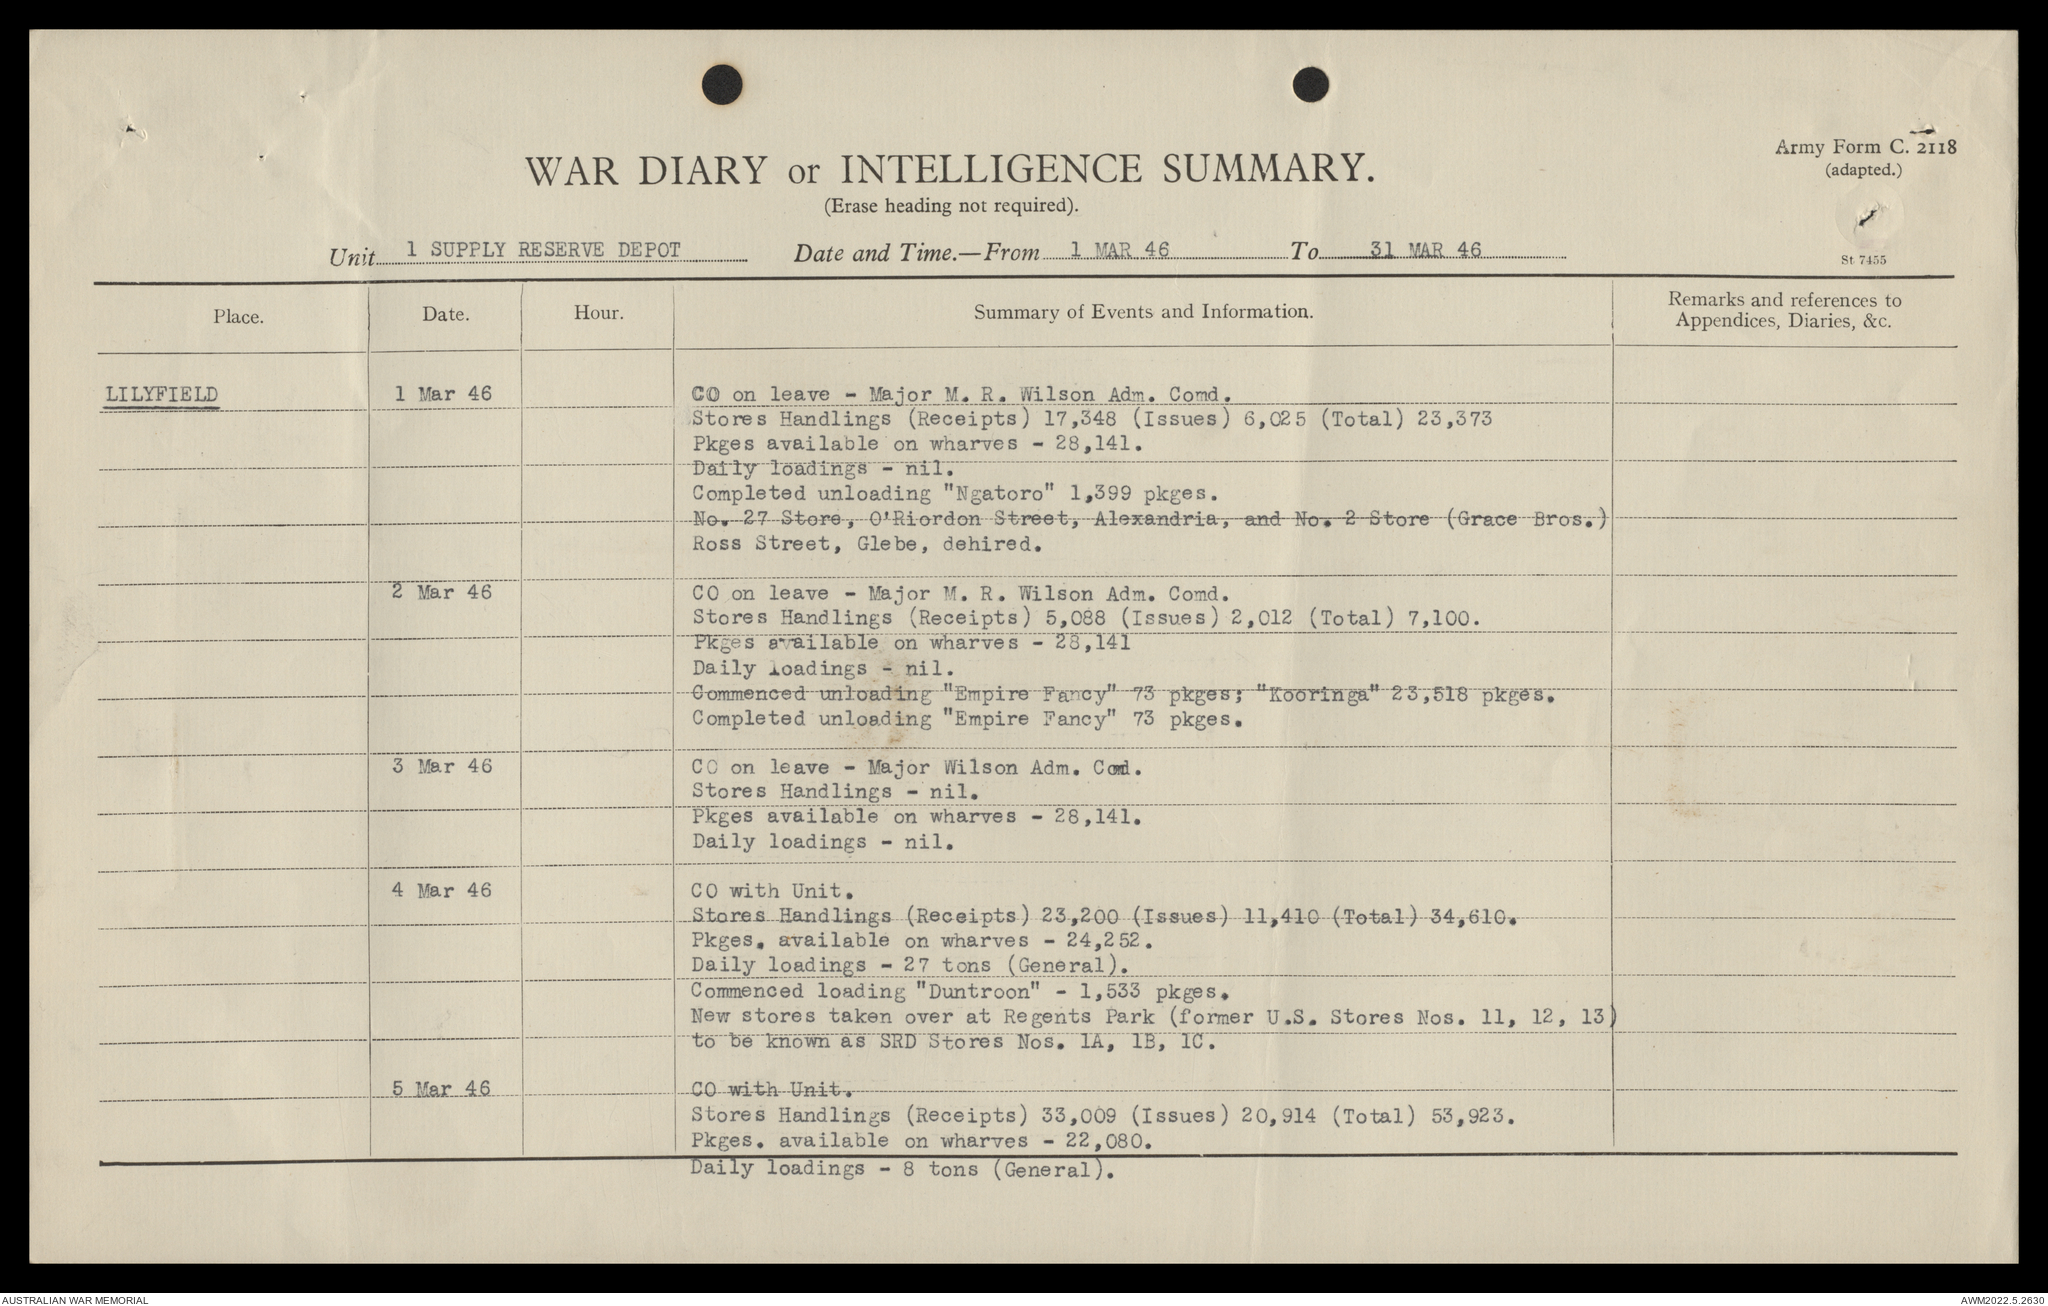 Army Form C. 2118
(adapted.)
WAR DIARY or INTELLIGENCE SUMMARY.
(Erase heading not required).
Unit 1 SUPPLY RESERVE DEPOT Date and Time.—From 1 MAR 46 To 31 MAR 46
St 7455
Place. Date. Hour. Summary of Events and Information. Remarks and references to Appendices, Diaries, &c.
LILYFIELD 1 Mar 46 CO on leave - Major M. R. Wilson Adm. Comd.
Stores Handlings (Receipts) 17,348 (Issues) 6,025 (Total) 23,373
Pkges available on wharves - 28,141.
Daily loadings - nil.
Completed unloading "Ngatoro" 1,399 pkges.
No. 27 Store, O'Riordon Street, Alexandria, and No. 2 Store (Grace Bros.)
Ross Street, Glebe, dehired.
2 Mar 46 CO on leave - Major M. R. Wilson Adm. Comd.
Stores Handlings (Receipts) 5,088 (Issues) 2,012 (Total) 7,100.
Pkges available on wharves - 28,141
Daily loadings - nil.
Commenced unloading "Empire Fancy" 73 pkges; "Kooringa" 23,518 pkges.
Completed unloading "Empire Fancy" 73 pkges.
3 Mar 46 CO on leave - Major Wilson Adm. Comd.
Stores Handlings - nil.
Pkges available on wharves - 28,141.
Daily loadings - nil.
4 Mar 46 CO with Unit.
Stores Handlings (Receipts) 23,200 (Issues) 11,410 (Total) 34,610.
Pkges. available on wharves - 24,252.
Daily loadings - 27 tons (General).
Commenced loading "Duntroon" - 1,533 pkges.
New stores taken over at Regents Park (former U.S. Stores Nos. 11, 12, 13)
to be known as SRD Stores Nos. 1A, 1B, 1C.
5 Mar 46 CO with Unit.
Stores Handlings (Receipts) 33,009 (Issues) 20,914 (Total) 53,923.
Pkges. available on wharves - 22,080.
Daily loadings - 8 tons (General).
AUSTRALIAN WAR MEMORIAL
AWM2022.5.2630